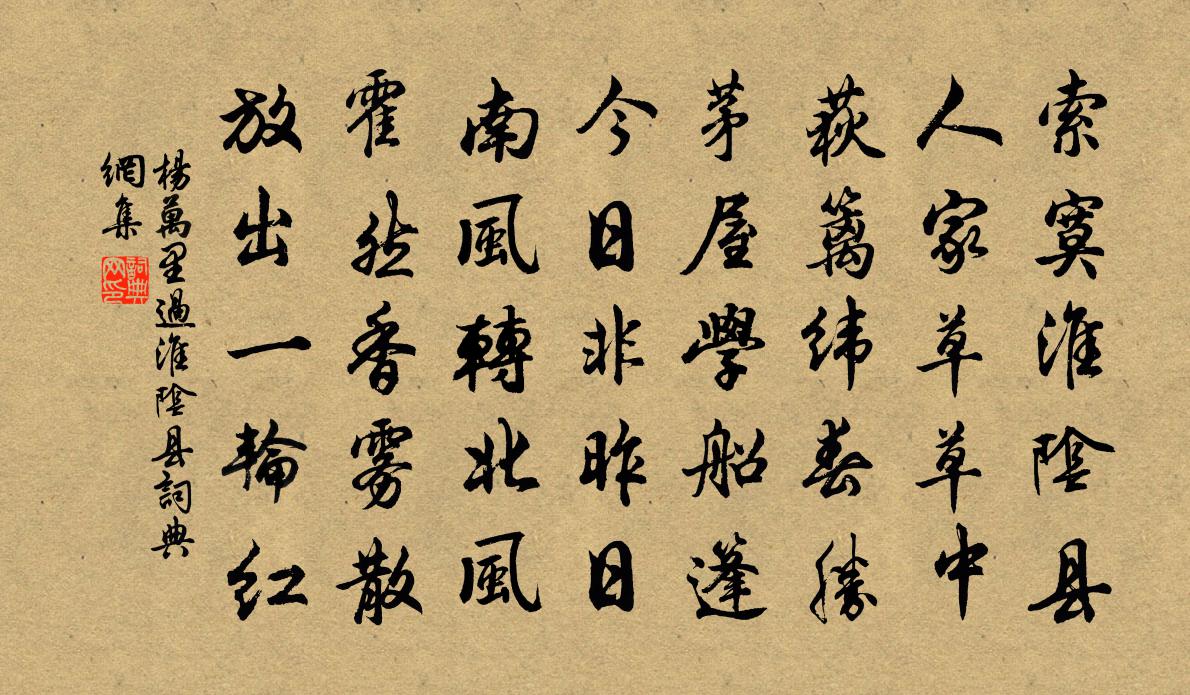 索寞淮陰县
人家草草中
荻篱緯春勝
茅屋學船篷
今日非昨日
南風轉北風
霍然香雾散
放出一輪红
楊萬里過淮陰县詞典
網集
詞典
网印